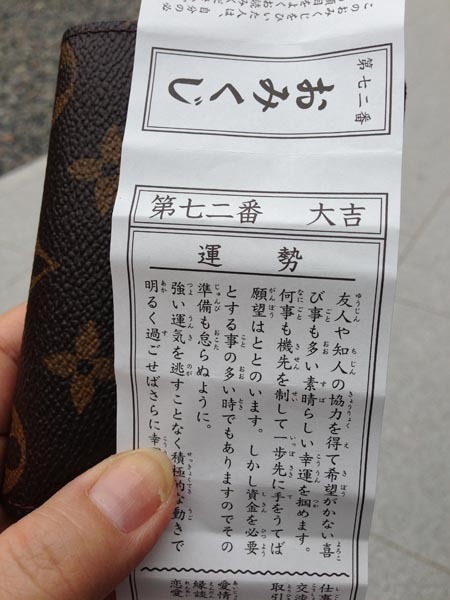 第七二番
おみくじ
第七二番 大吉
運勢
友人や知人の協力を得て希望がかない喜
び事も多い素晴らしい幸運を掴めます。
何事も機先を制して一歩先に手をうてば
願望はととのいます。しかし資金を必要
とする事の多い時でもありますのでその
準備も怠らぬように。
強い運気を逃すことなく積極的な動きで
明るく過ごせばさらに幸
仕事
交渉
取引
愛情
縁談
恋愛